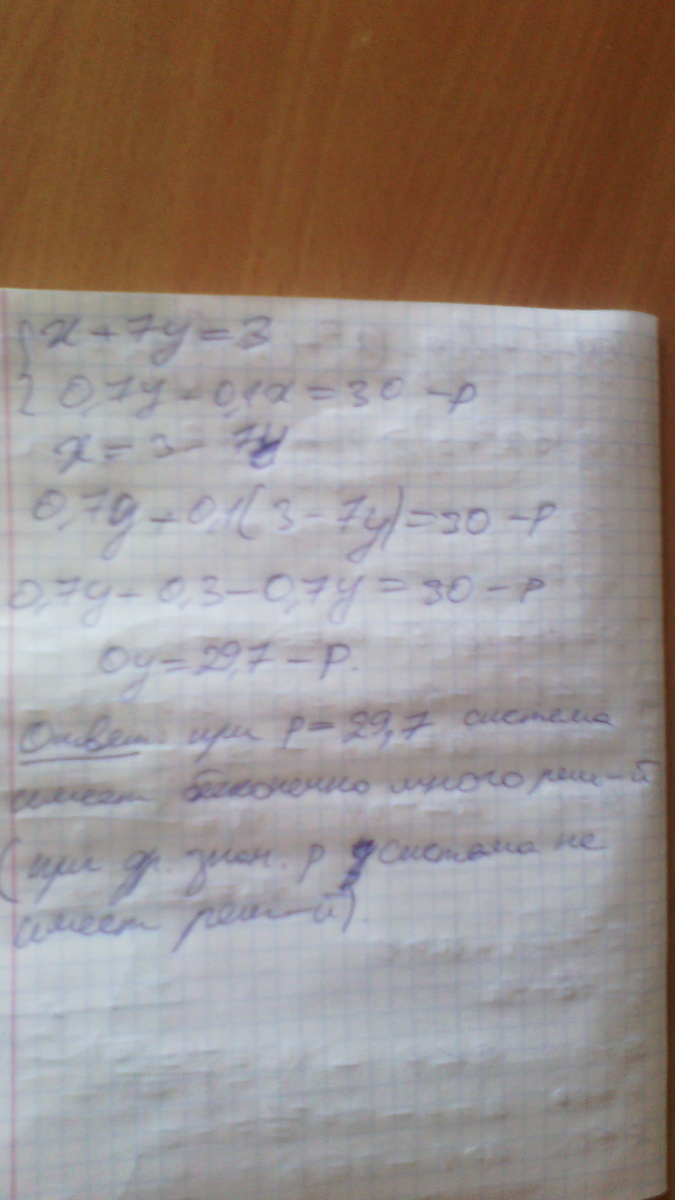 { x + 7y = 3
0,7y + 0,1x = 30 - p
x = 3 - 7y
0,7y + 0,1(3 - 7y) = 30 - p
0,7y + 0,3 - 0,7y = 30 - p
0y = 29,7 - p.
Ответ: при p = 29,7 система
имеет бесконечно много реш-й
(при др. знач. p система не
имеет реш-й).